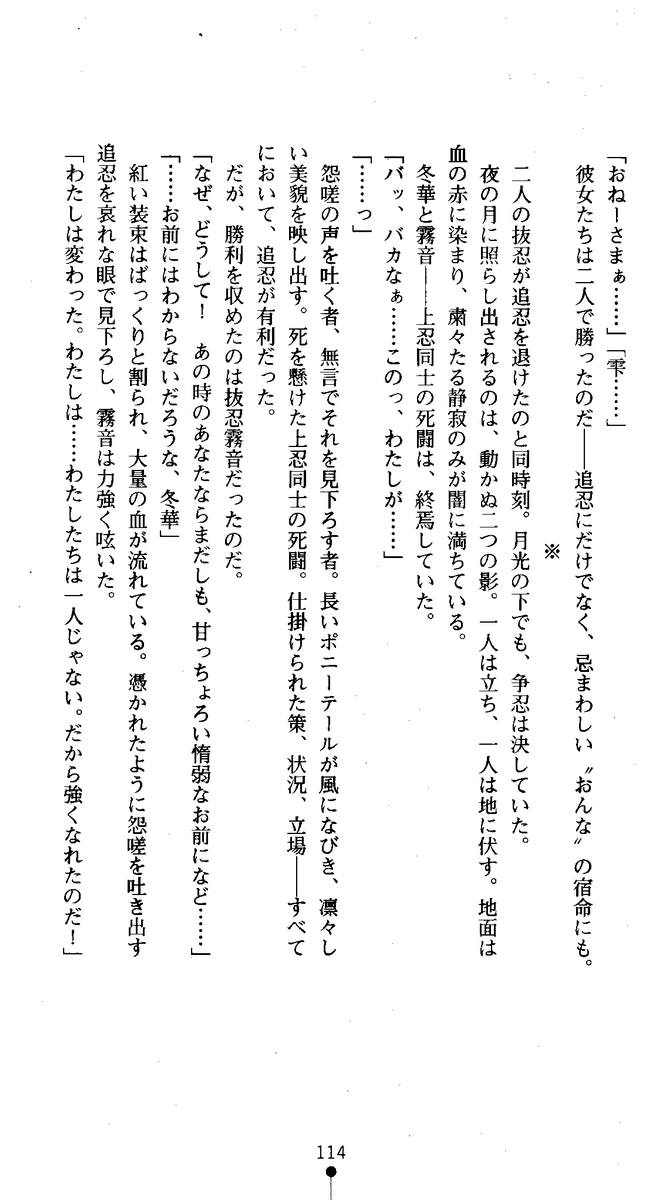 「おねーさまぁ……」「雫……」
　彼女たちは二人で勝ったのだ――追忍にだけでなく、忌まわしい〝おんな〟の宿命にも。
※
　二人の抜忍が追忍を退けたのと同時刻。月光の下でも、争忍は決していた。
　夜の月に照らし出されるのは、動かぬ二つの影。一人は立ち、一人は地に伏す。地面は
血の赤に染まり、粛々たる静寂のみが闇に満ちている。
　冬華と霧音――上忍同士の死闘は、終焉していた。
「バッ、バカなぁ……このっ、わたしが……」
「……っ」
　怨嗟の声を吐く者、無言でそれを見下ろす者。長いポニーテールが風になびき、凛々し
い美貌を映し出す。死を懸けた上忍同士の死闘。仕掛けられた策、状況、立場――すべて
において、追忍が有利だった。
　だが、勝利を収めたのは抜忍霧音だったのだ。
「なぜ、どうして！　あの時のあなたならまだしも、甘っちょろい惰弱なお前になど……」
「……お前にはわからないだろうな、冬華」
　紅い装束はばっくりと割られ、大量の血が流れている。憑かれたように怨嗟を吐き出す
追忍を哀れな眼で見下ろし、霧音は力強く呟いた。
「わたしは変わった。わたしは……わたしたちは一人じゃない。だから強くなれたのだ！」
114